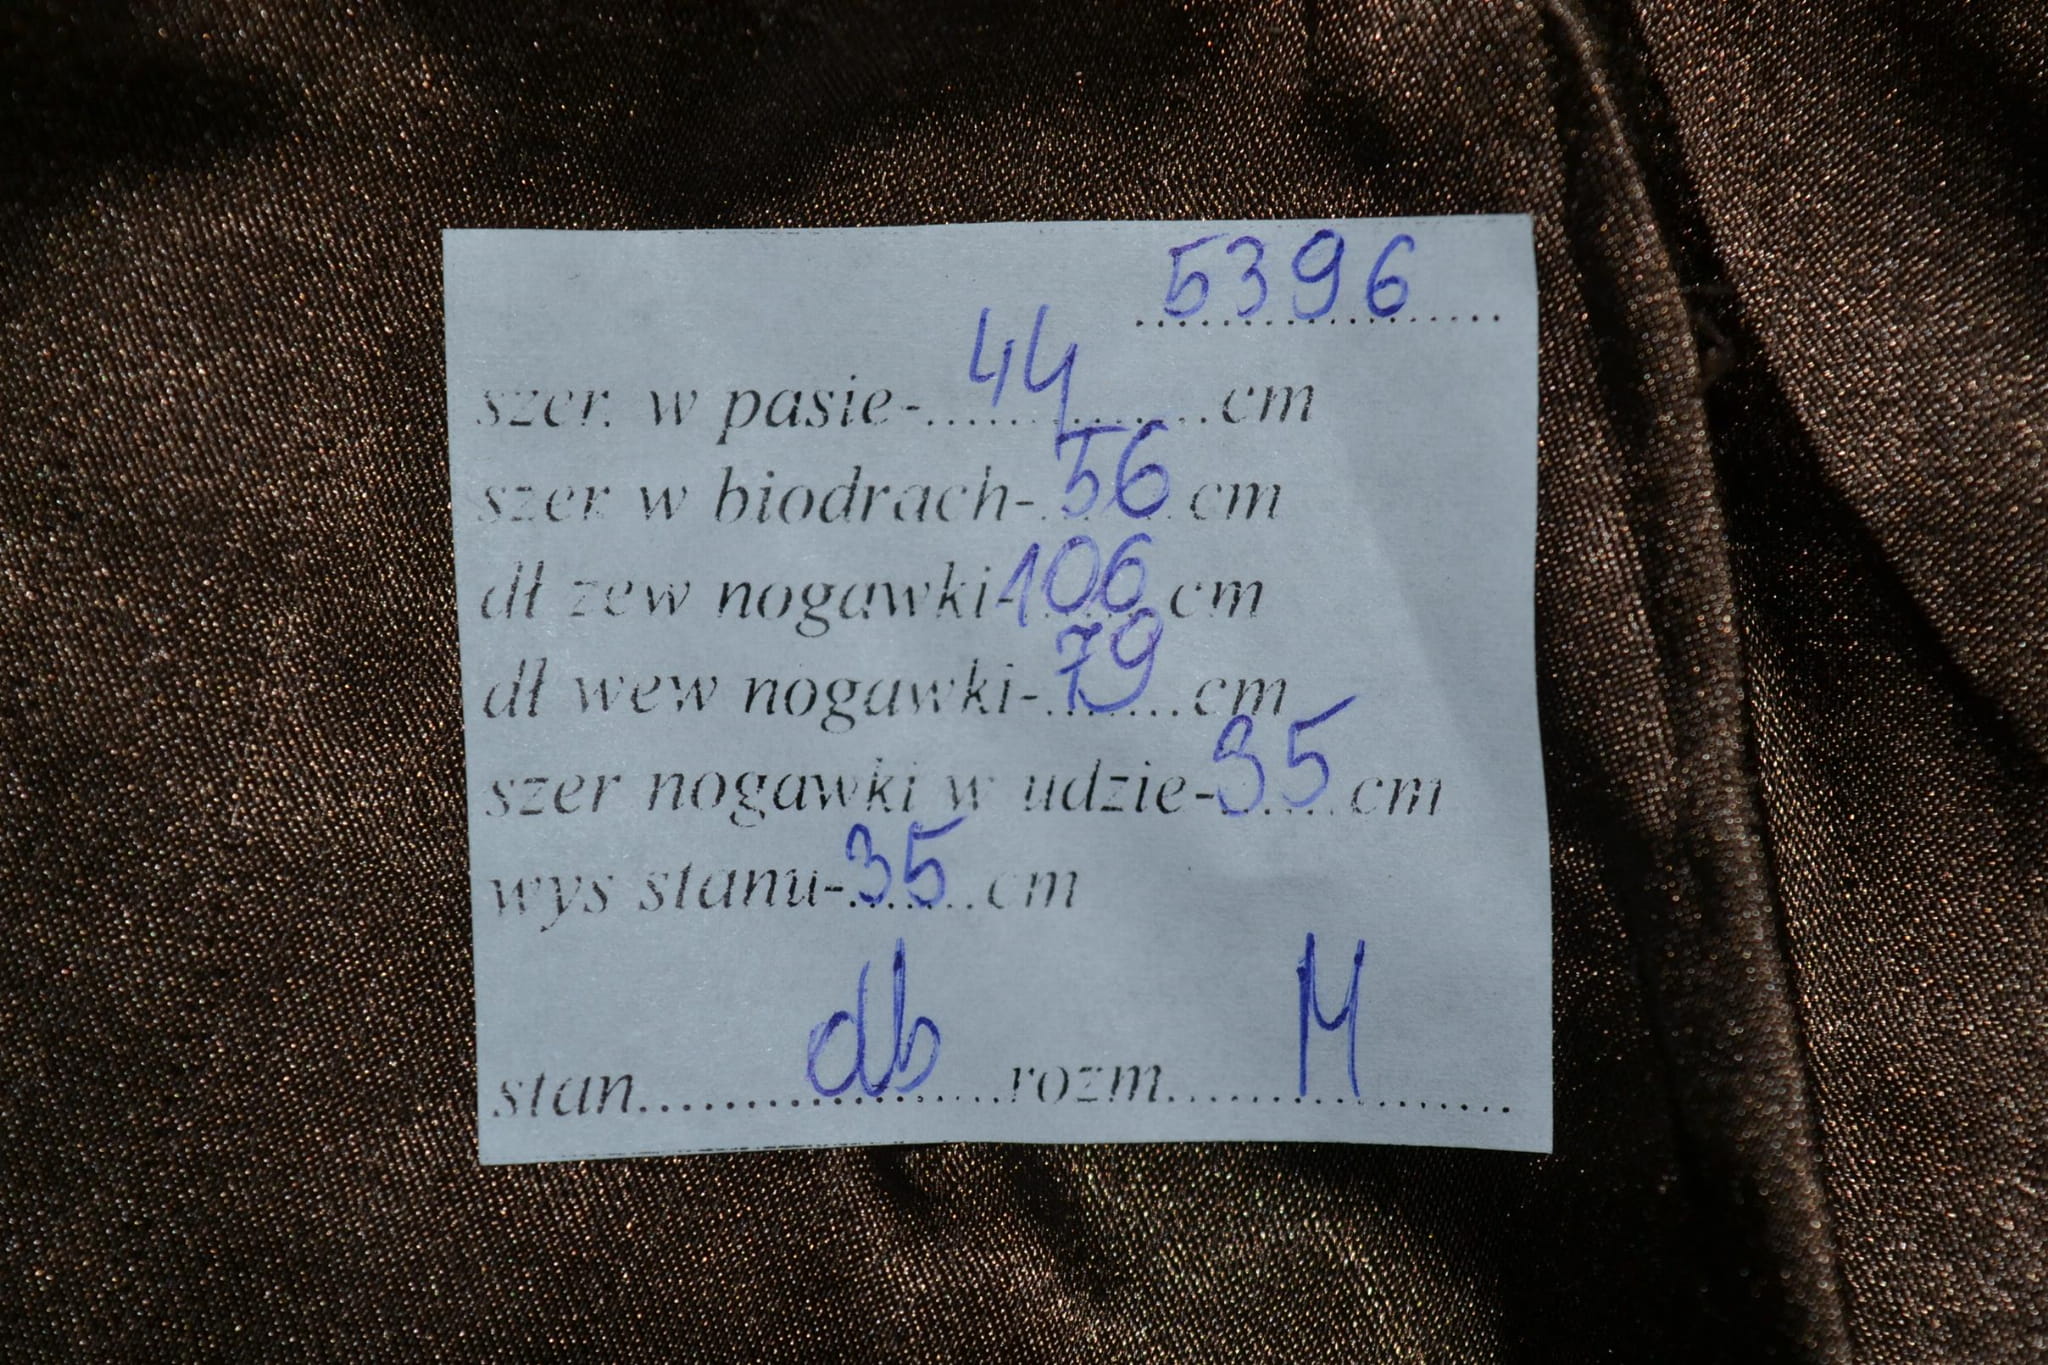 5396
szer. w pasie-44cm
szer w biodrach-56cm
dł zew nogawki-106cm
dł wew nogawki-79cm
szer nogawki w udzie-35cm
wys stanu-35cm
stan.......db.......rozm.......M.......